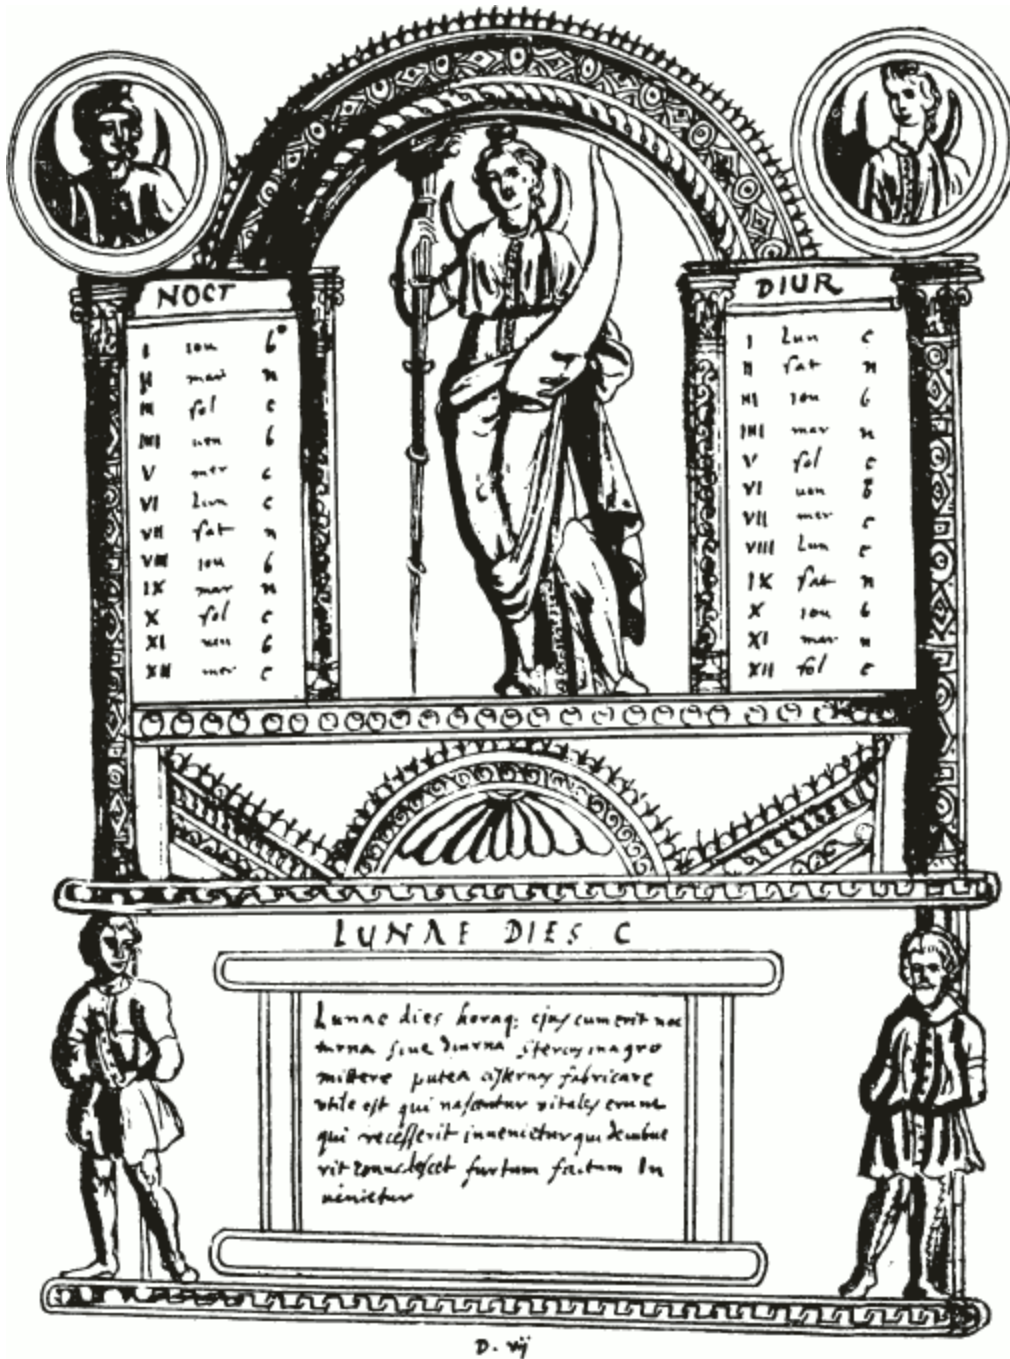 NOCT
I iou b
II mar n
III sol c
IIII uen b
V mer c
VI Lun c
VII sat n
VIII iou b
IX mar n
X sol c
XI uen b
XII mer c
DIUR
I Lun c
II sat n
III iou b
IIII mar n
V sol c
VI uen b
VII mer c
VIII Lun c
IX sat n
X iou b
XI mar n
XII sol c
LUNAE DIES C
Lunae dies horaq; ejus cum erit noc
turna siue diurna stercus in agro
mittere putea cisternas fabricare
utile est qui nascentur vitales erunt
qui recesserit inuenietur qui decubue
rit conualescet furtum factum In
uenietur
D. vij